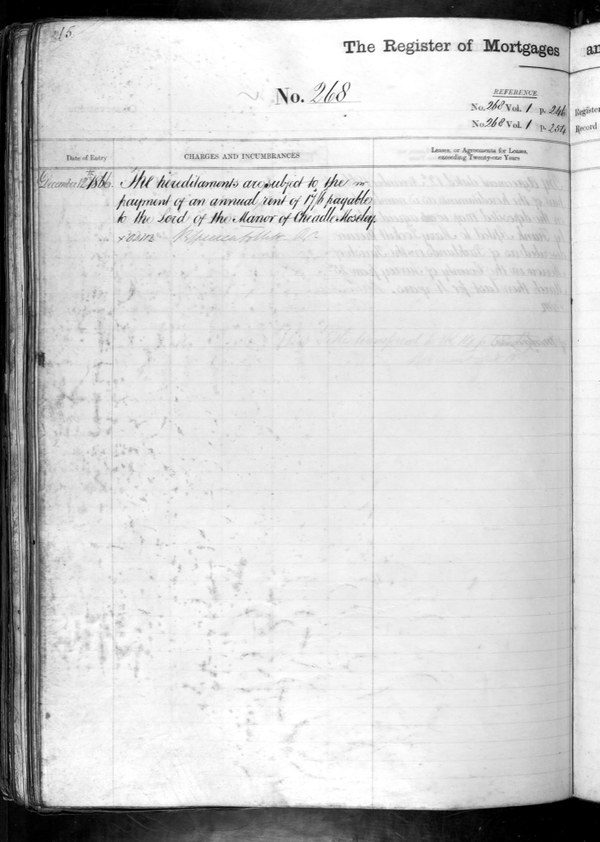 The Register of Mortgages an
No. 268
REFERENCE.
No. 268 Vol. 1 p. 246
No. 268 Vol. 1 p.
Register
Record
Date of Entry
CHARGES AND INCUMBRANCES
Leases, or Agreements for Leases,
exceeding Twenty-one Years
December 12th 1866 The hereditaments are subject to the
payment of an annual rent of 17/6 payable
to the Lord of the Manor of Cheadle Moseley